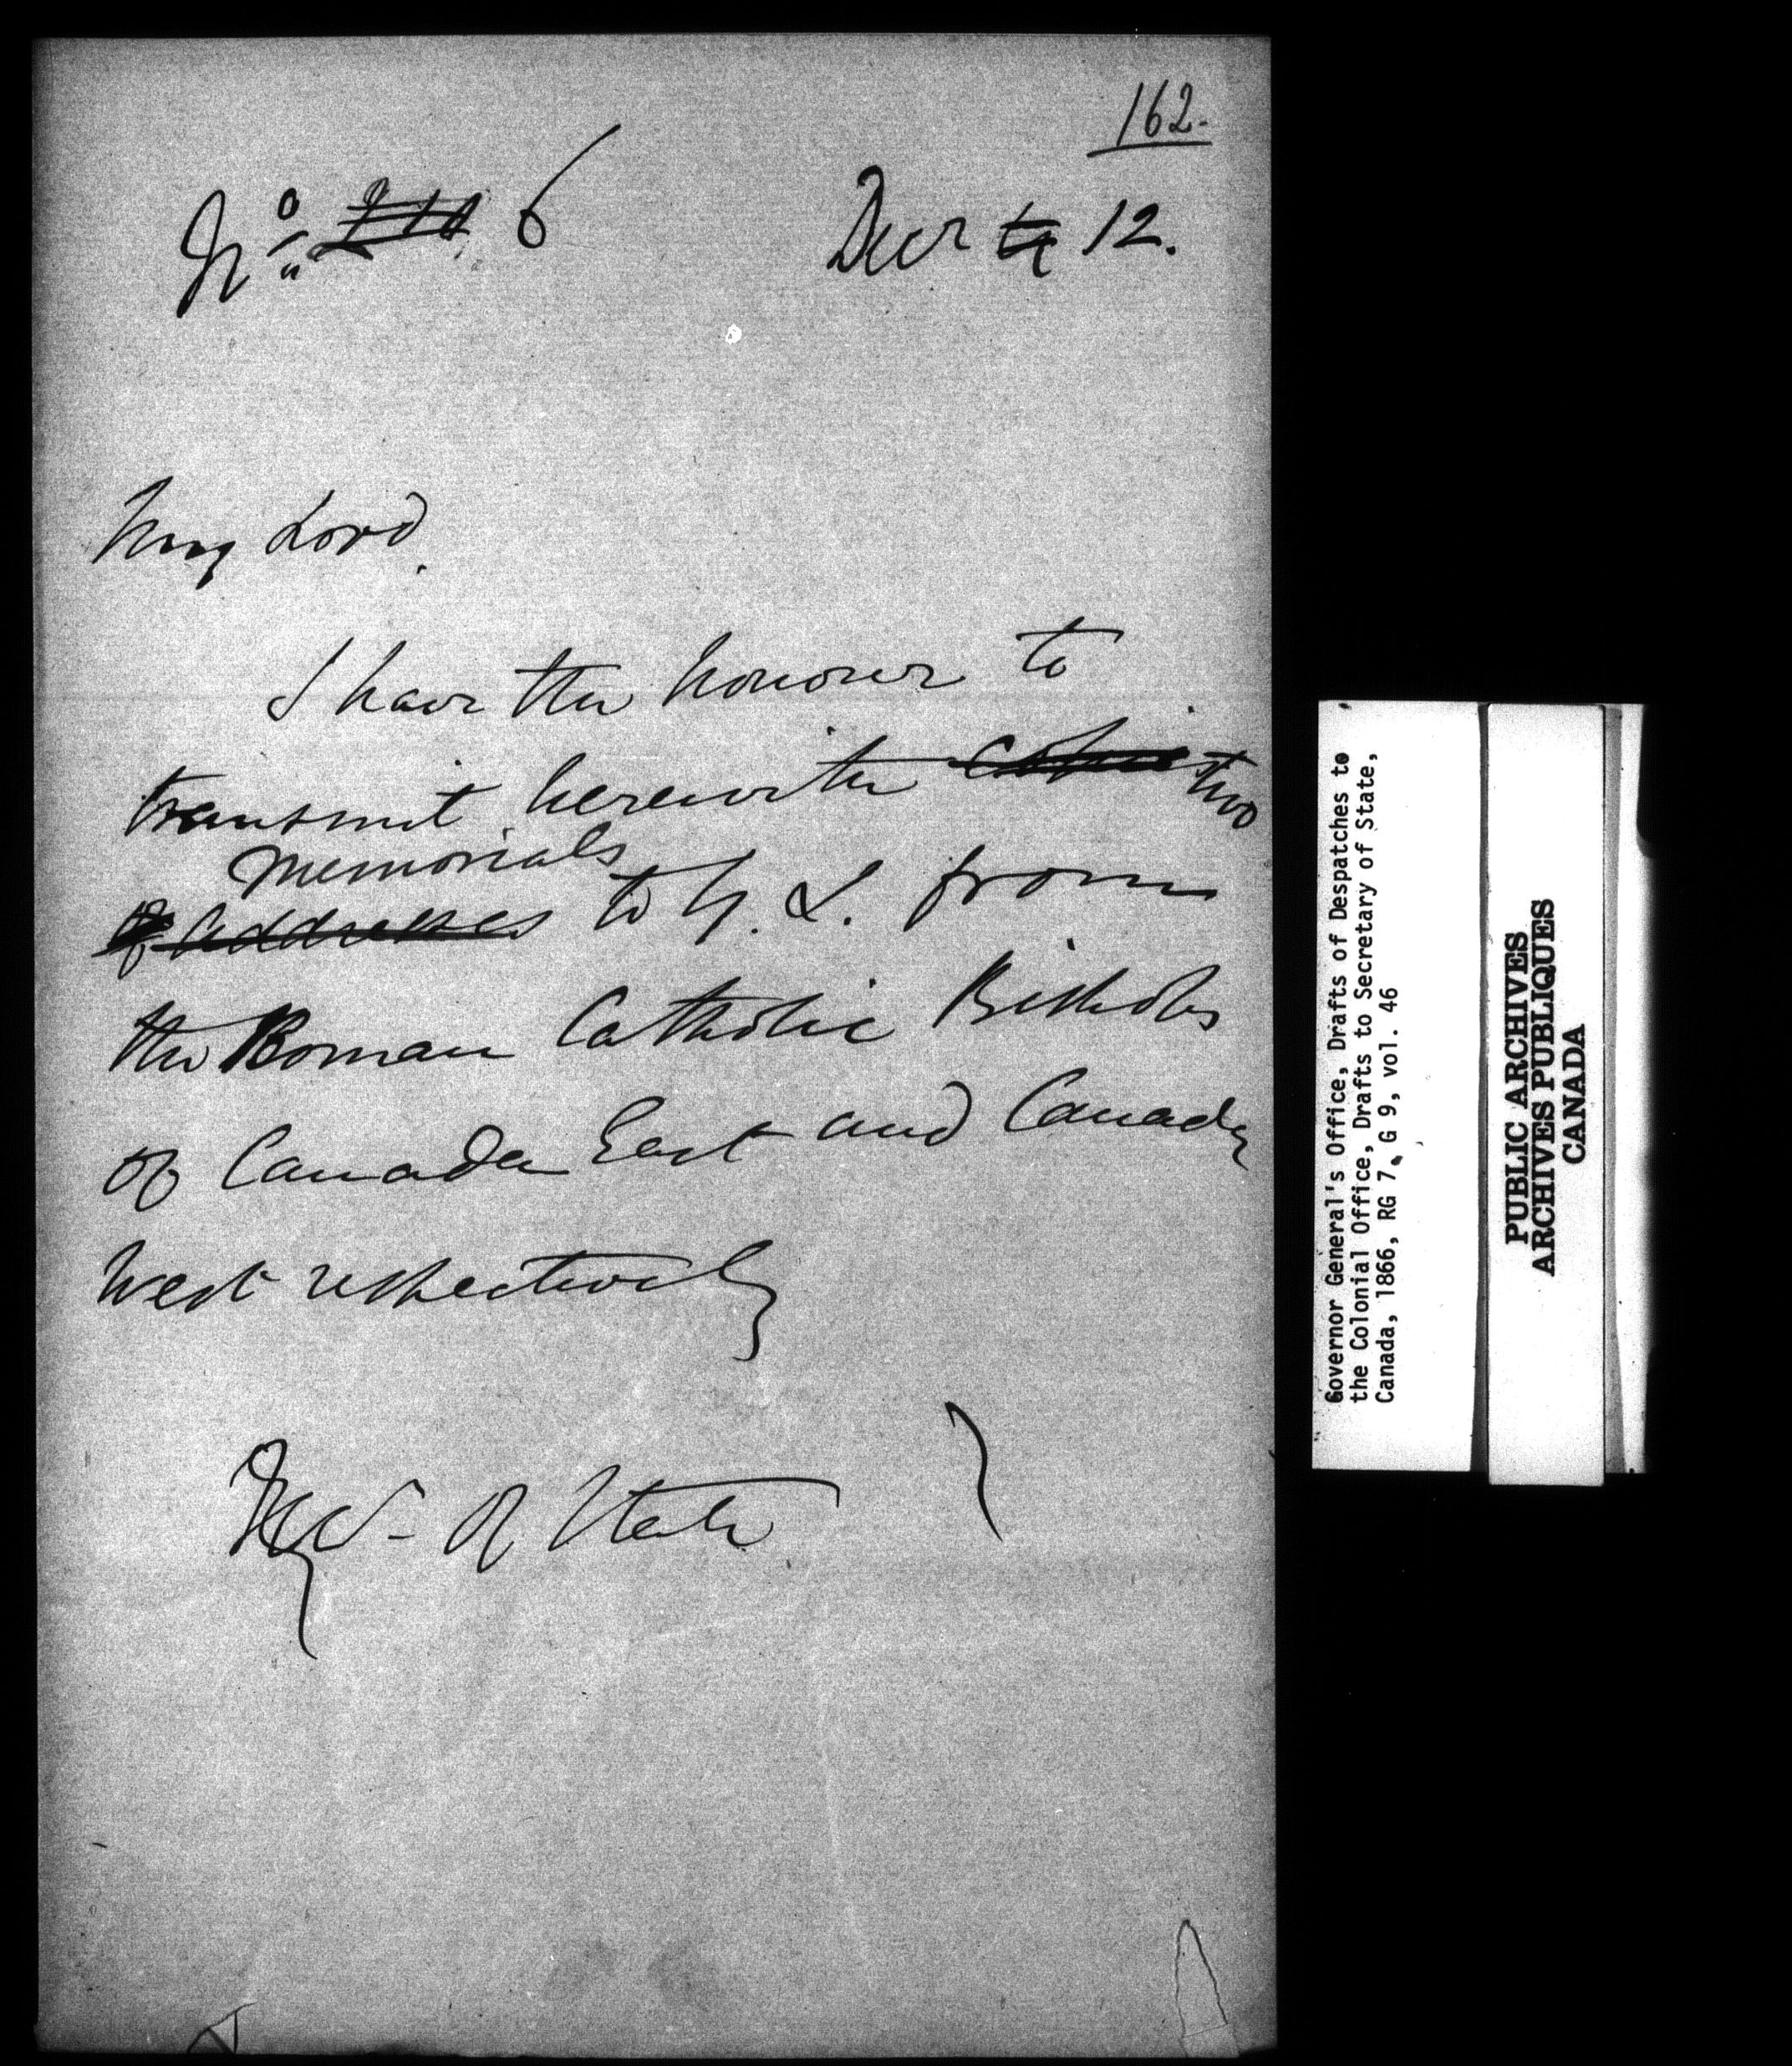 162.
No. 6
Decr 12.
My Lord.
I have the honour to
transmit herewith copies two
memorials
of addresses to Y. L. from
the Roman Catholic Bishops
of Canada East and Canada
West respectively
Secy of State
Governor General's Office, Drafts of Despatches to
the Colonial Office, Drafts to Secretary of State,
Canada, 1866, RG 7, G 9, vol. 46
PUBLIC ARCHIVES
ARCHIVES PUBLIQUES
CANADA